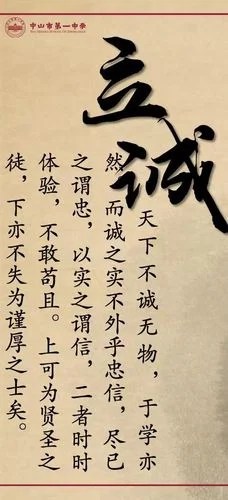 中山市第一中学
立诚
天下不诚无物，于学亦
然，而诚之实不外乎忠信，尽已
之谓忠，以实之谓信，二者时时
体验，不敢苟且。上可为贤圣之
徒，下亦不失为谨厚之士矣。